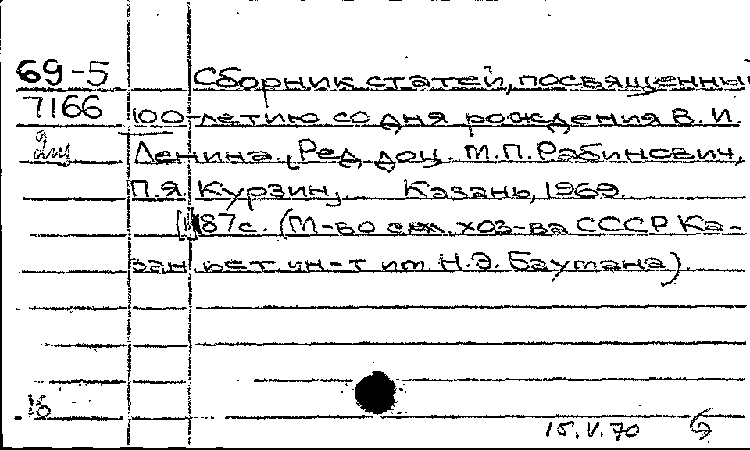 69-5 Сборник статей, посвященный
7166 100-летию со дня рождения В.И.
Ленина. (Ред. доц. М.П. Рабинович,
П.Я. Курзин, Казань, 1969.
187с. (М-во сел. хоз-ва СССР Ка-
зан. вет ин-т им. Н.Э. Баумана)
16
15.V.70